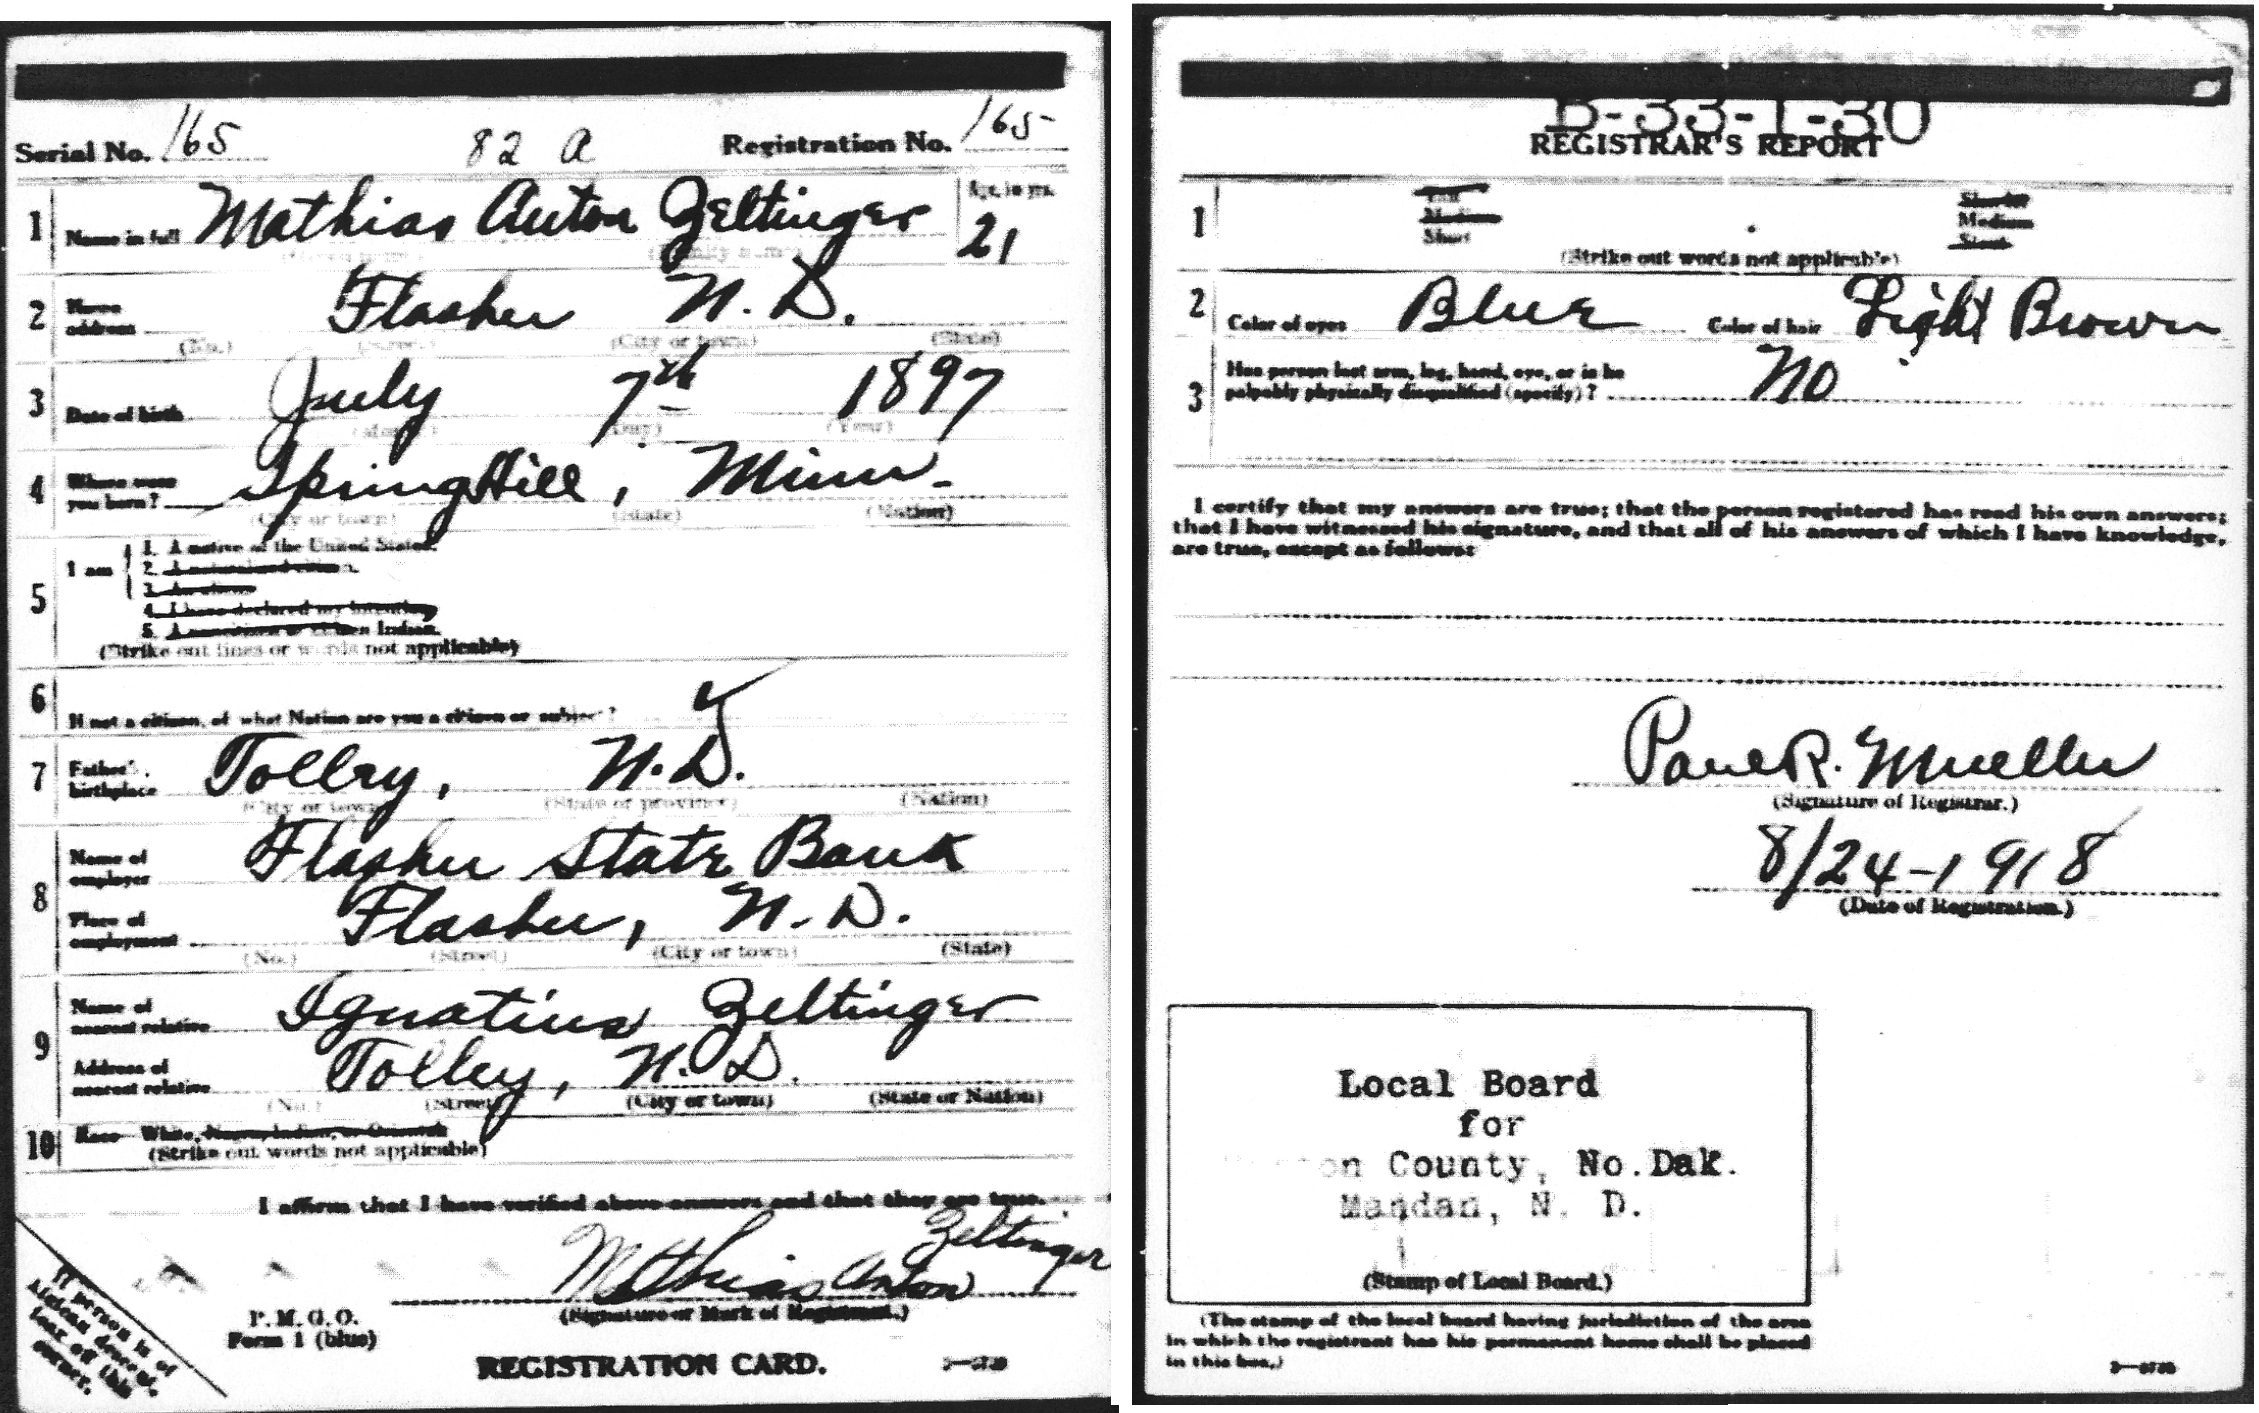 Serial No. 165 82 A Registration No. 165
1 Name in full Mathias Anton Zeltinger Age, in yrs. 21
(Family name)
2 Home address Flasher N. D.
(No.) (Street) (City or town) (State)
3 Date of birth July 7th 1897
(Month) (Day) (Year)
4 Where were you born? Spring Hill, Minn.
(City or town) (State) (Nation)
5 I am 1. A native of the United States.
2. A naturalized citizen.
3. An alien.
4. I have declared my intention
5. A noncitizen or citizen Indian.
(Strike out lines or words not applicable)
6 If not a citizen, of what Nation are you a citizen or subject?
7 Father's birthplace Tolley, N. D.
(City or town) (State or province) (Nation)
8 Name of employer Flasher State Bank
Place of employment Flasher, N. D.
(No.) (Street) (City or town) (State)
9 Name of nearest relative Ignatius Zeltinger
Address of nearest relative Tolley, N. D.
(No.) (Street) (City or town) (State or Nation)
10 Race—White, Negro, Indian, or Oriental
(Strike out words not applicable)
I affirm that I have verified above answers and that they are true.
Mathias Anton Zeltinger
(Signature or Mark of Registrant.)
P. M. G. O.
Form 1 (blue)
REGISTRATION CARD.
If person is of
African descent,
tear off this
corner.
B-33-1-30
REGISTRAR'S REPORT
1 Tall Slender
Medium Medium
Short Stout
(Strike out words not applicable)
2 Color of eyes Blue Color of hair Light Brown
3 Has person lost arm, leg, hand, eye, or is he
palpably physically disqualified (specify)? No
I certify that my answers are true; that the person registered has read his own answers;
that I have witnessed his signature, and that all of his answers of which I have knowledge,
are true, except as follows:
Paul R. Mueller
(Signature of Registrar.)
8/24-1918
(Date of Registration.)
Local Board
for
County, No. Dak.
Mandan, N. D.
(Stamp of Local Board.)
(The stamp of the local board having jurisdiction of the area
in which the registrant has his permanent home shall be placed
in this box.)